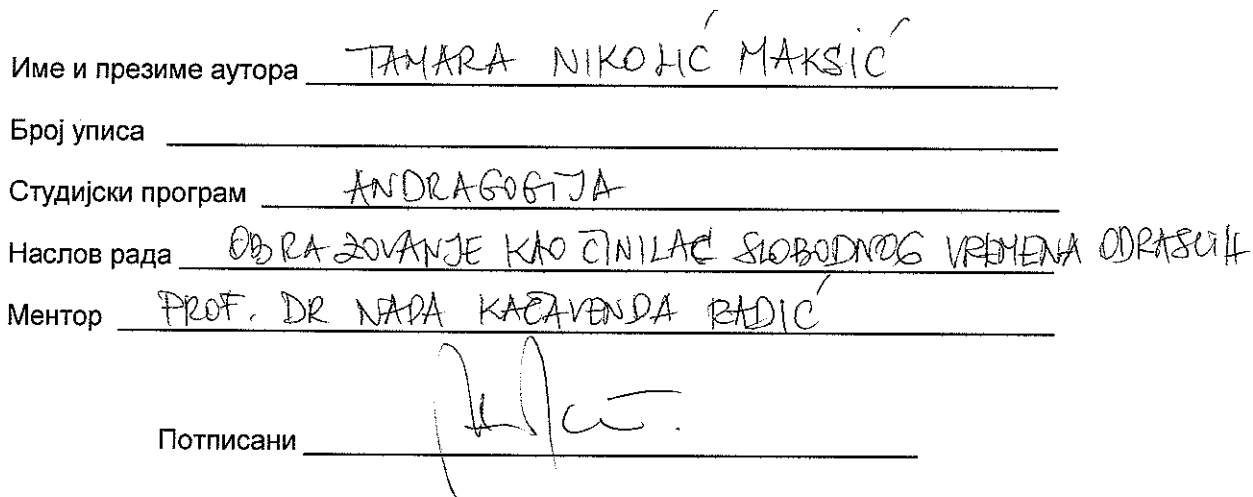 Име и презиме аутора TAMARA NIKOLIĆ MAKSIĆ
Број уписа
Студијски програм ANDRAGOGIJA
Наслов рада OBRAZOVANJE KAO ČINILAC SLOBODNOG VREMENA ODRASLIH
Ментор PROF. DR NADA KAČAVENDA RADIĆ
Потписани